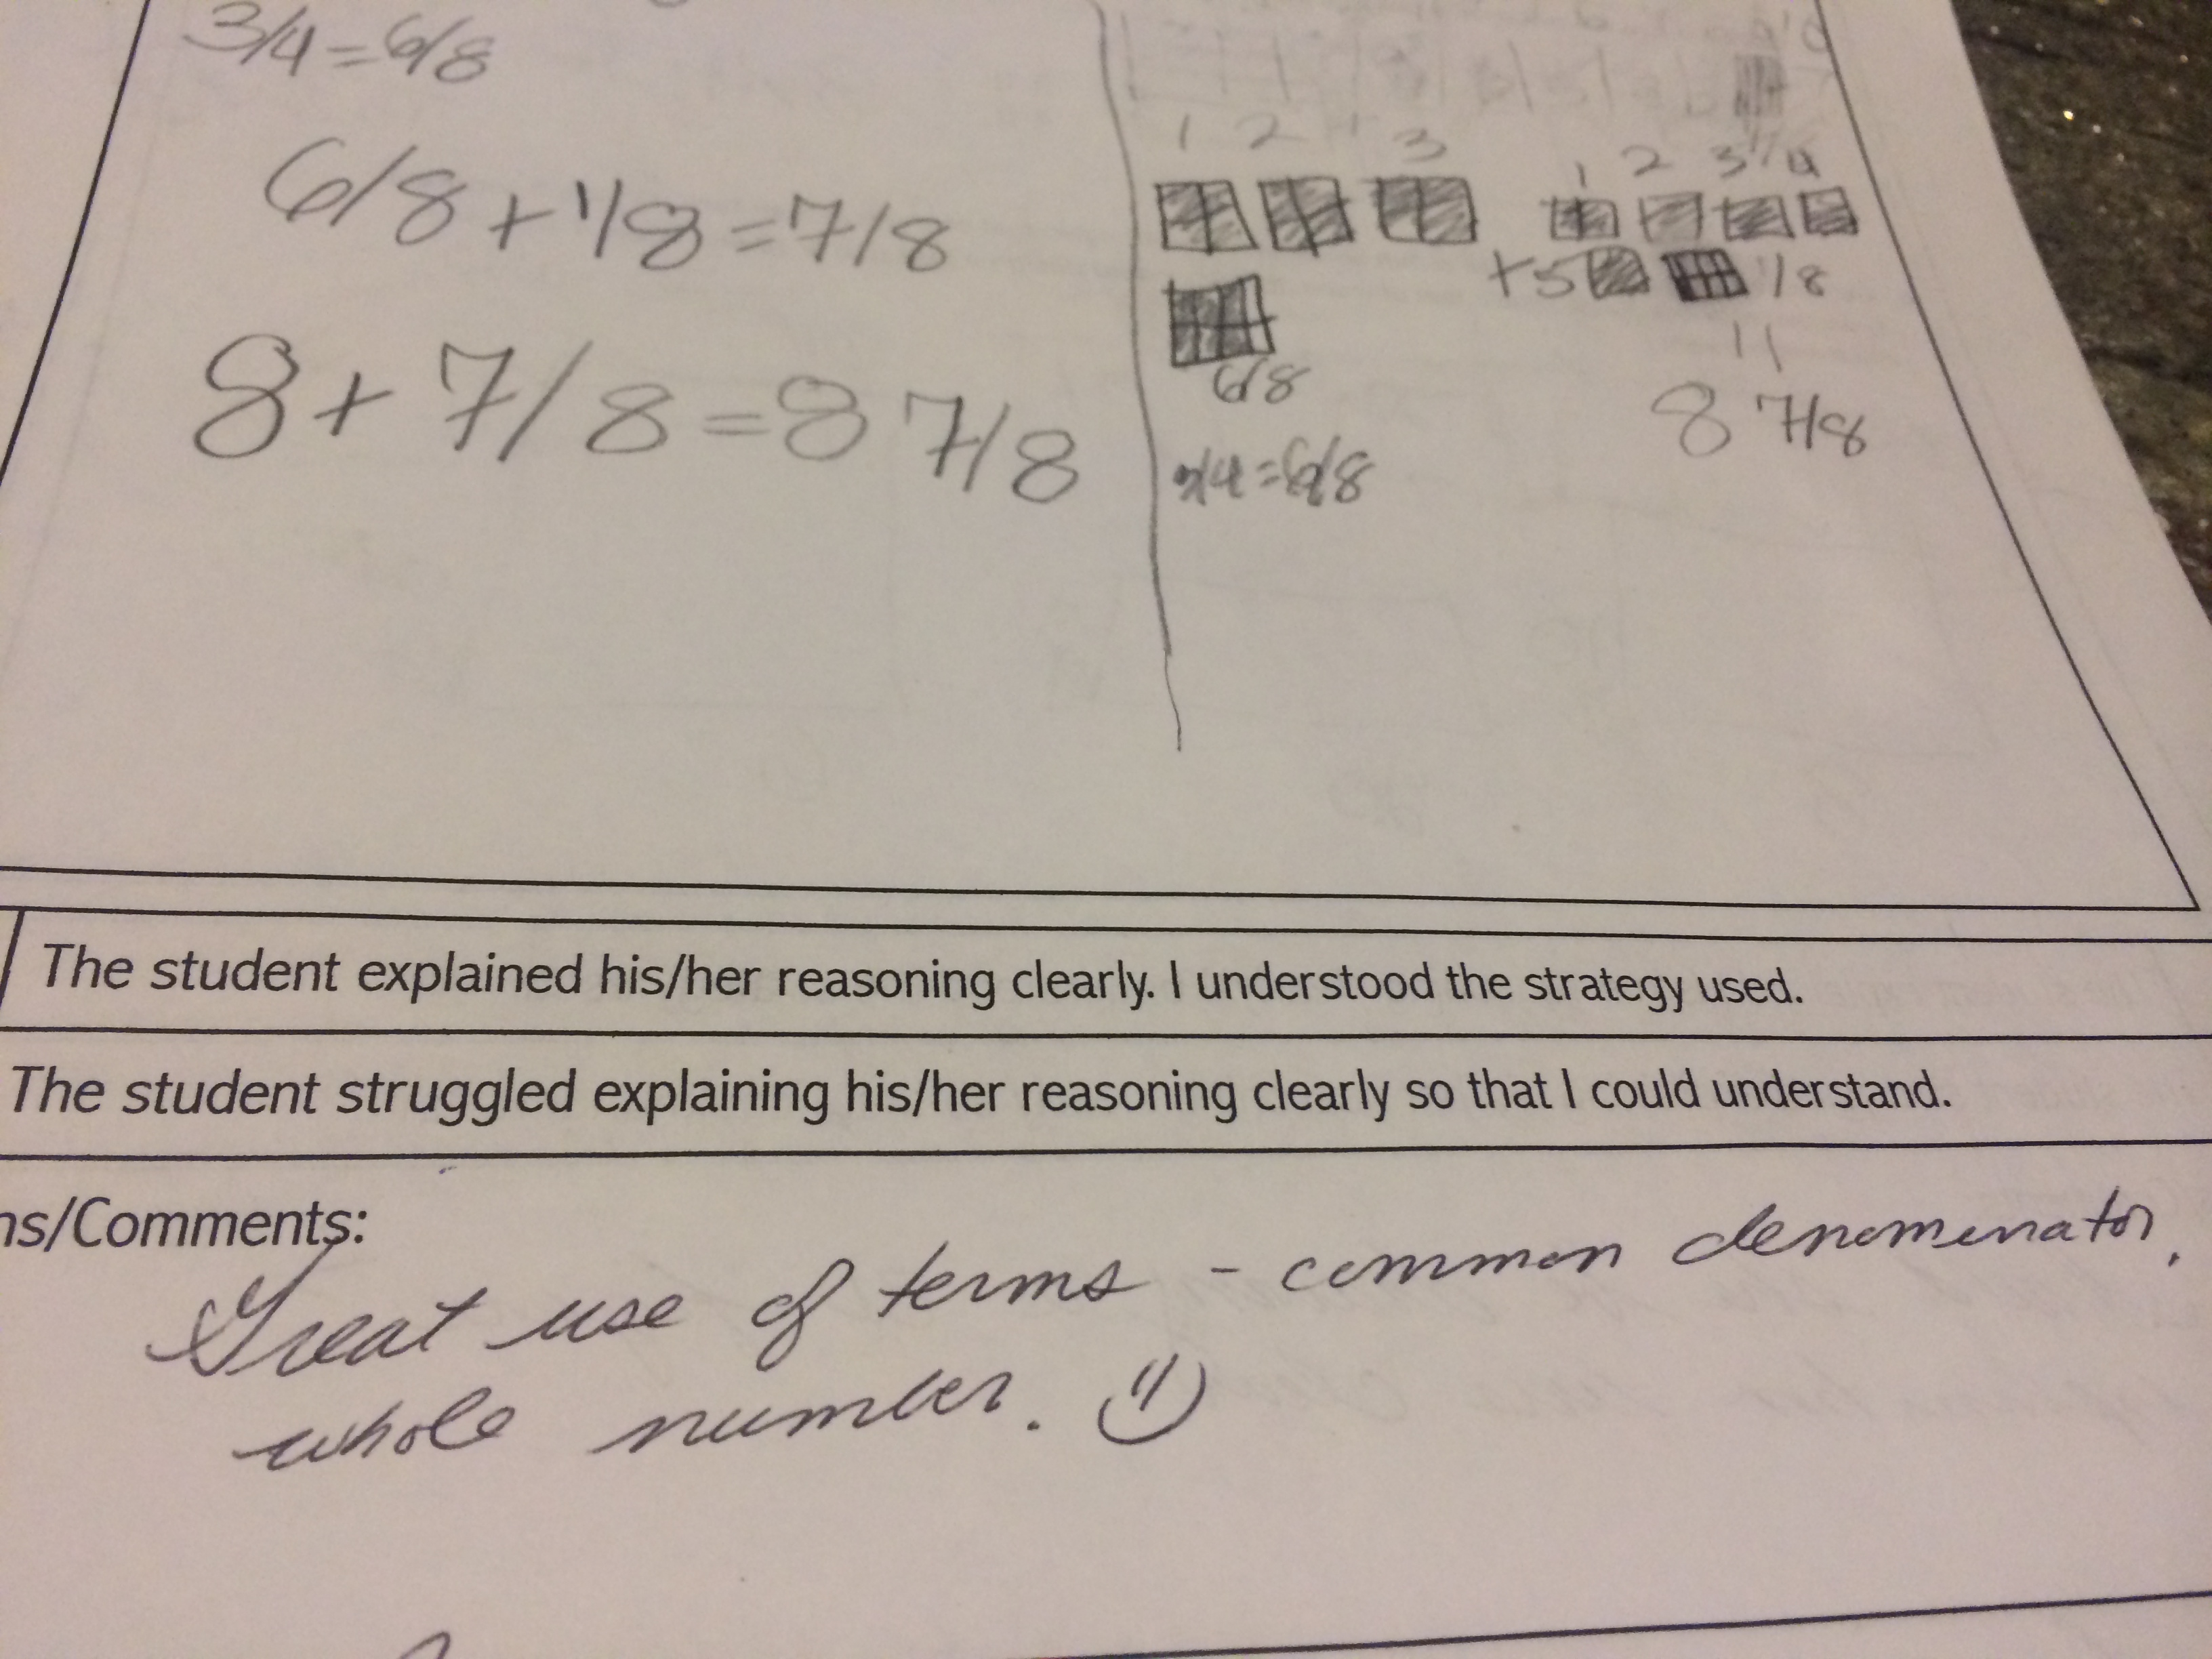 3/4=6/8
6/8+1/8=7/8
8+7/8=8 7/8
1 2 3
6/8
3/4=6/8
1 2 3 4
+5 1/8
8 7/8
The student explained his/her reasoning clearly. I understood the strategy used.
The student struggled explaining his/her reasoning clearly so that I could understand.
ns/Comments:
Great use of terms - common denominator,
whole number.